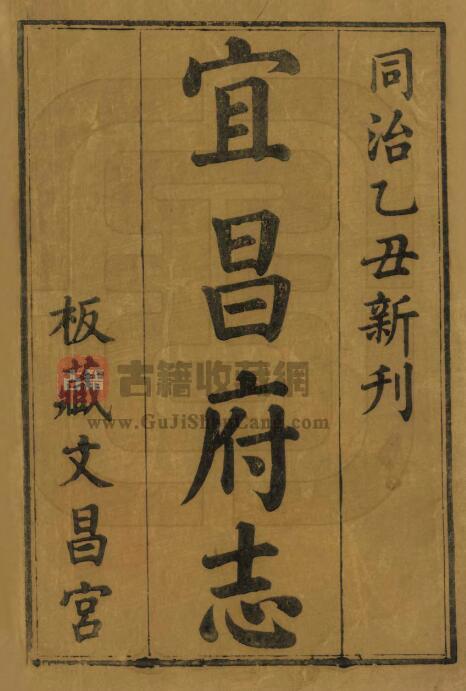 同治乙丑新刊
宜昌府志
板藏文昌宮
古籍
古籍收藏網
www.GuJiShouCang.com